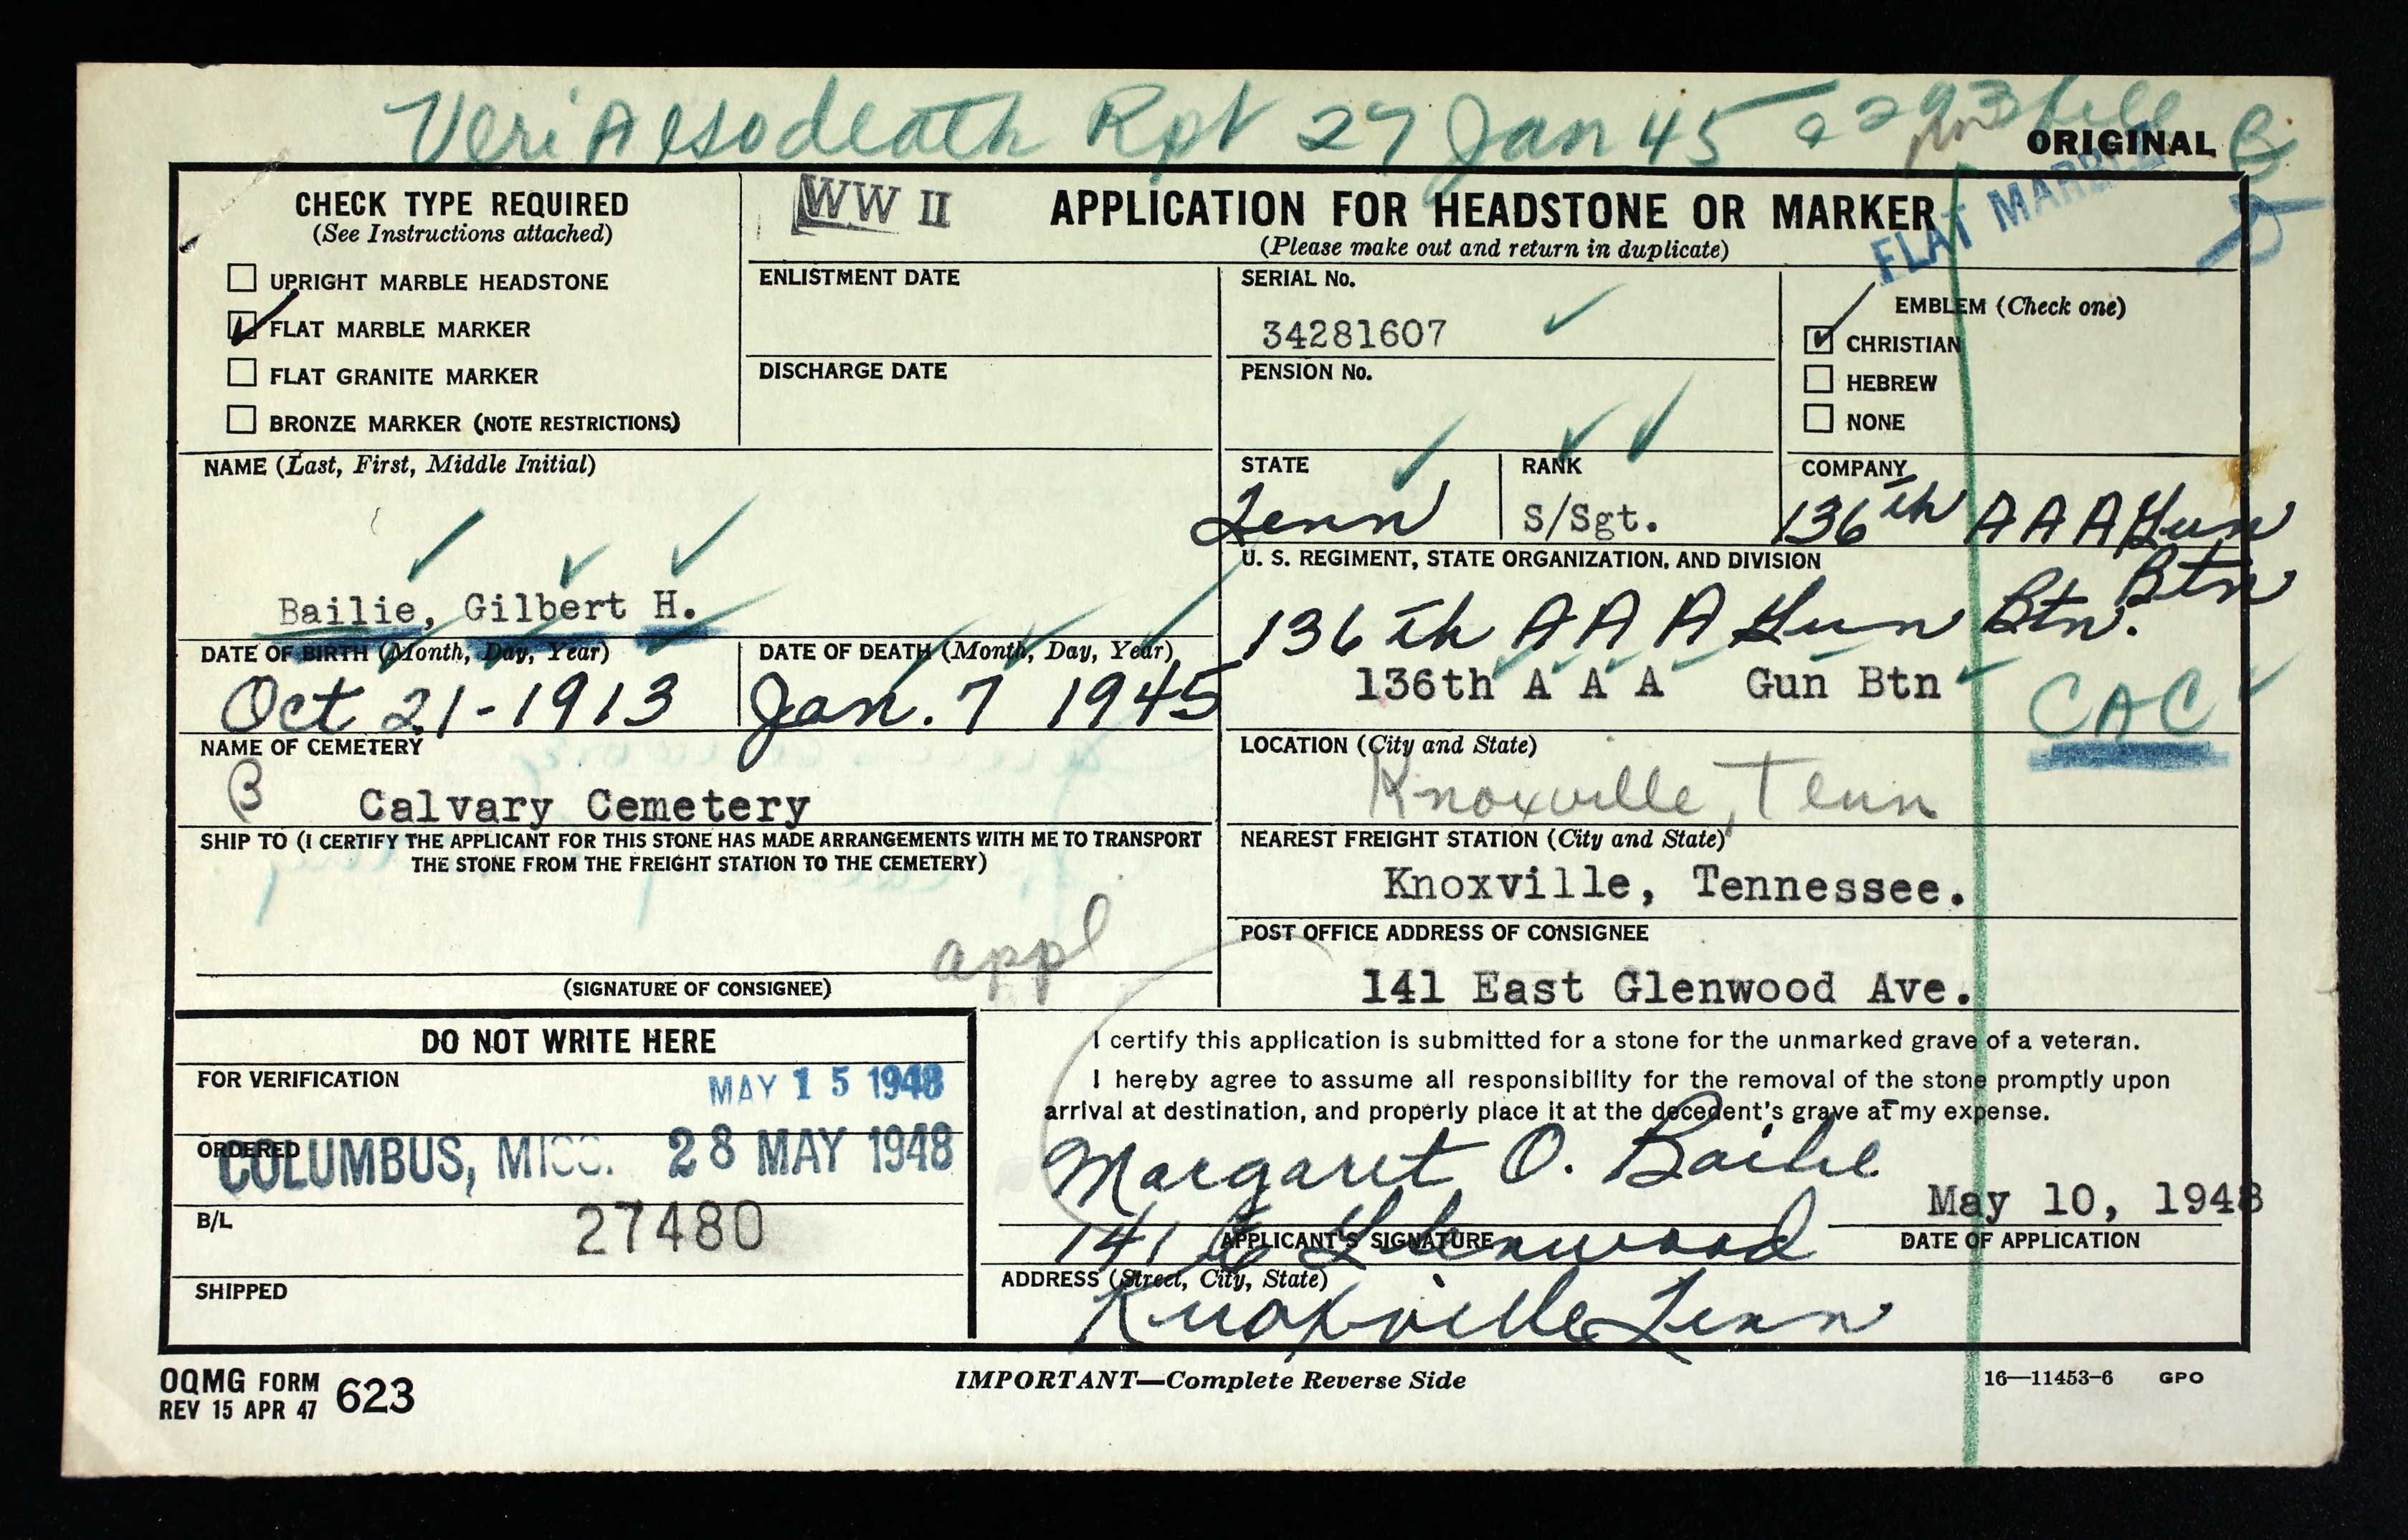 Veri Also death Rpt 27 Jan 45 a 293 file
ORIGINAL
B
FLAT MARBLE
CHECK TYPE REQUIRED
(See Instructions attached)
UPRIGHT MARBLE HEADSTONE
FLAT MARBLE MARKER
FLAT GRANITE MARKER
BRONZE MARKER (NOTE RESTRICTIONS)
WW II
APPLICATION FOR HEADSTONE OR MARKER
(Please make out and return in duplicate)
ENLISTMENT DATE
DISCHARGE DATE
SERIAL No.
34281607
PENSION No.
EMBLEM (Check one)
CHRISTIAN
HEBREW
NONE
NAME (Last, First, Middle Initial)
Bailie, Gilbert H.
STATE
Tenn
RANK
S/Sgt.
COMPANY
136th A A A Gun
Btn
U. S. REGIMENT, STATE ORGANIZATION, AND DIVISION
136th A A A Gun Btn.
136th A A A Gun Btn
CAC
DATE OF BIRTH (Month, Day, Year)
Oct 21-1913
DATE OF DEATH (Month, Day, Year)
Jan. 7 1945
NAME OF CEMETERY
B
Calvary Cemetery
LOCATION (City and State)
Knoxville, Tenn
SHIP TO (I CERTIFY THE APPLICANT FOR THIS STONE HAS MADE ARRANGEMENTS WITH ME TO TRANSPORT
THE STONE FROM THE FREIGHT STATION TO THE CEMETERY)
appl
(SIGNATURE OF CONSIGNEE)
NEAREST FREIGHT STATION (City and State)
Knoxville, Tennessee.
POST OFFICE ADDRESS OF CONSIGNEE
141 East Glenwood Ave.
DO NOT WRITE HERE
FOR VERIFICATION
MAY 15 1948
ORDERED
COLUMBUS, MISS. 28 MAY 1948
B/L
27480
SHIPPED
I certify this application is submitted for a stone for the unmarked grave of a veteran.
I hereby agree to assume all responsibility for the removal of the stone promptly upon
arrival at destination, and properly place it at the decedent's grave at my expense.
Margaret O. Bailie
May 10, 1948
APPLICANT'S SIGNATURE
DATE OF APPLICATION
141 E Glenwood
ADDRESS (Street, City, State)
Knoxville Tenn
OQMG FORM 623
REV 15 APR 47
IMPORTANT—Complete Reverse Side
16—11453-6 GPO